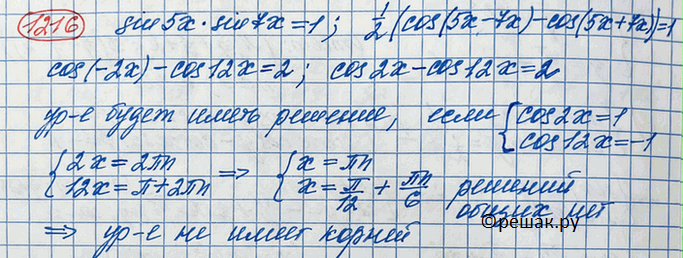 1216 sin 5x · sin 7x = 1; 1/2 (cos(5x - 7x) - cos(5x + 7x)) = 1
cos(-2x) - cos 12x = 2; cos 2x - cos 12x = 2
ур-е будет иметь решение, если { cos 2x = 1
cos 12x = -1
{ 2x = 2πn
12x = π + 2πn => { x = πn
x = π/12 + πn/6 решений
общих нет
=> ур-е не имеет корней
©решак.ру